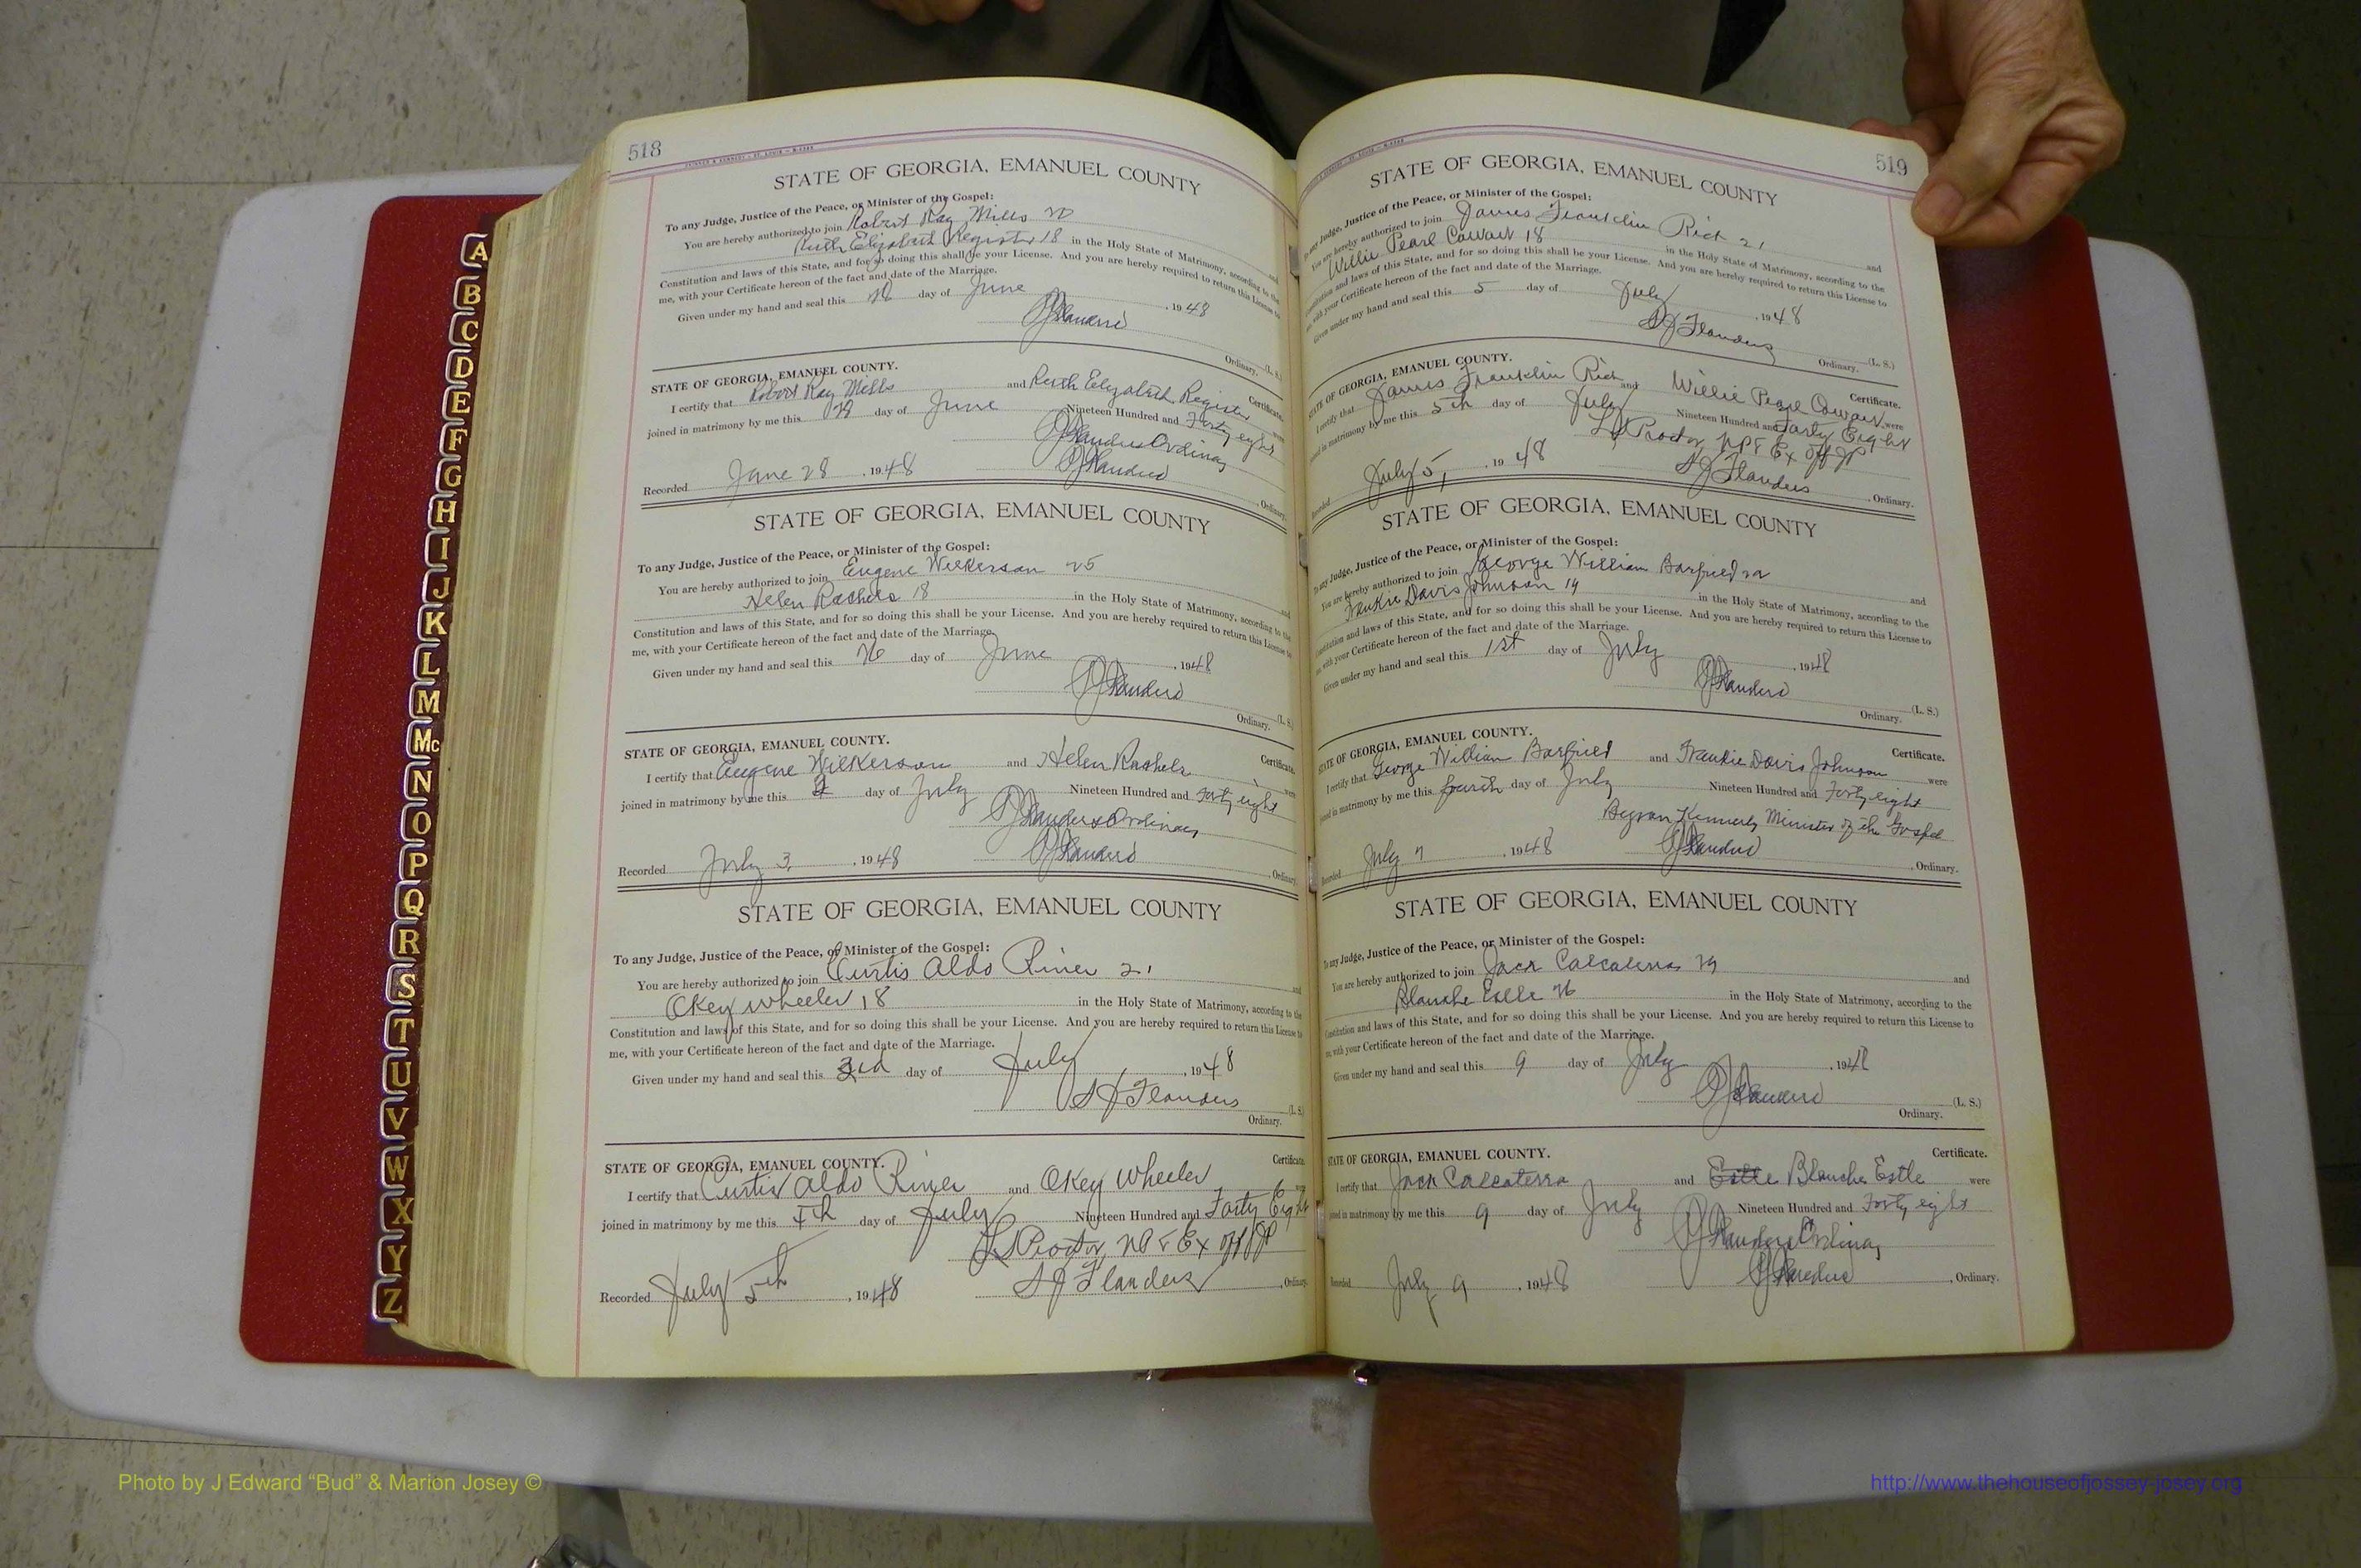 518
STATE OF GEORGIA, EMANUEL COUNTY
To any Judge, Justice of the Peace, or Minister of the Gospel:
You are hereby authorized to join Robert Ray Mills and
Ruth Elizabeth Register 18 in the Holy State of Matrimony, according to the
Constitution and laws of this State, and for so doing this shall be your License. And you are hereby required to return this License to
me, with your Certificate hereon of the fact and date of the Marriage.
Given under my hand and seal this day of June , 1948
(L. S.)
Ordinary.
STATE OF GEORGIA, EMANUEL COUNTY. Certificate.
I certify that Robert Ray Mills and Ruth Elizabeth Register were
joined in matrimony by me this day of June Nineteen Hundred and Forty eight
Flanders Ordinary
Recorded June 28 , 1948 Flanders , Ordinary.
STATE OF GEORGIA, EMANUEL COUNTY
To any Judge, Justice of the Peace, or Minister of the Gospel:
You are hereby authorized to join Eugene Wilkerson 25 and
Helen Rachels 18 in the Holy State of Matrimony, according to the
Constitution and laws of this State, and for so doing this shall be your License. And you are hereby required to return this License to
me, with your Certificate hereon of the fact and date of the Marriage.
Given under my hand and seal this 26 day of June , 1948
Flanders (L. S.)
Ordinary.
STATE OF GEORGIA, EMANUEL COUNTY. Certificate.
I certify that Eugene Wilkerson and Helen Rachels were
joined in matrimony by me this day of July Nineteen Hundred and Forty eight
Flanders Ordinary
Recorded July 3, , 1948 Flanders , Ordinary.
STATE OF GEORGIA, EMANUEL COUNTY
To any Judge, Justice of the Peace, or Minister of the Gospel:
You are hereby authorized to join Curtis Aldo Riner 21 and
Okey Wheeler 18 in the Holy State of Matrimony, according to the
Constitution and laws of this State, and for so doing this shall be your License. And you are hereby required to return this License to
me, with your Certificate hereon of the fact and date of the Marriage.
Given under my hand and seal this 3rd day of July , 1948
Flanders (L. S.)
Ordinary.
STATE OF GEORGIA, EMANUEL COUNTY. Certificate.
I certify that Curtis Aldo Riner and Okey Wheeler were
joined in matrimony by me this 4th day of July Nineteen Hundred and Forty Eight
Proctor, NP & Ex Off JP
Recorded July 5th , 1948 Flanders , Ordinary.
519
STATE OF GEORGIA, EMANUEL COUNTY
any Judge, Justice of the Peace, or Minister of the Gospel:
You are hereby authorized to join James Franklin Rich 21 and
Willie Pearl Cowart 18 in the Holy State of Matrimony, according to the
Constitution and laws of this State, and for so doing this shall be your License. And you are hereby required to return this License to
me, with your Certificate hereon of the fact and date of the Marriage.
Given under my hand and seal this 5 day of July , 1948
Flanders (L. S.)
Ordinary.
STATE OF GEORGIA, EMANUEL COUNTY. Certificate.
I certify that James Franklin Rich and Willie Pearl Cowart were
joined in matrimony by me this 5th day of July Nineteen Hundred and Forty Eight
Proctor, NP & Ex Off JP
Recorded July 5, , 1948 Flanders , Ordinary.
STATE OF GEORGIA, EMANUEL COUNTY
To any Judge, Justice of the Peace, or Minister of the Gospel:
You are hereby authorized to join George William Barfield and
Frankie Davis Johnson 19 in the Holy State of Matrimony, according to the
Constitution and laws of this State, and for so doing this shall be your License. And you are hereby required to return this License to
me, with your Certificate hereon of the fact and date of the Marriage.
Given under my hand and seal this 1st day of July , 1948
Flanders (L. S.)
Ordinary.
STATE OF GEORGIA, EMANUEL COUNTY. Certificate.
I certify that George William Barfield and Frankie Davis Johnson were
joined in matrimony by me this fourth day of July Nineteen Hundred and Forty eight
Byron Kennerly Minister of the Gospel
Recorded July 7 , 1948 Flanders , Ordinary.
STATE OF GEORGIA, EMANUEL COUNTY
To any Judge, Justice of the Peace, or Minister of the Gospel:
You are hereby authorized to join Jack Calcaterra 29 and
Blanche Estle 26 in the Holy State of Matrimony, according to the
Constitution and laws of this State, and for so doing this shall be your License. And you are hereby required to return this License to
me, with your Certificate hereon of the fact and date of the Marriage.
Given under my hand and seal this 9 day of July , 1948
Flanders (L. S.)
Ordinary.
STATE OF GEORGIA, EMANUEL COUNTY. Certificate.
I certify that Jack Calcaterra and Estle Blanche Estle were
joined in matrimony by me this 9 day of July Nineteen Hundred and Forty eight
Flanders Ordinary
Recorded July 9 , 1948 Flanders , Ordinary.
A
B
C
D
E
F
G
H
I
J
K
L
M
Mc
N
O
P
Q
R
S
T
U
V
W
X
Y
Z
Photo by J Edward “Bud” & Marion Josey ©
http://www.thehouseofjossey-josey.org